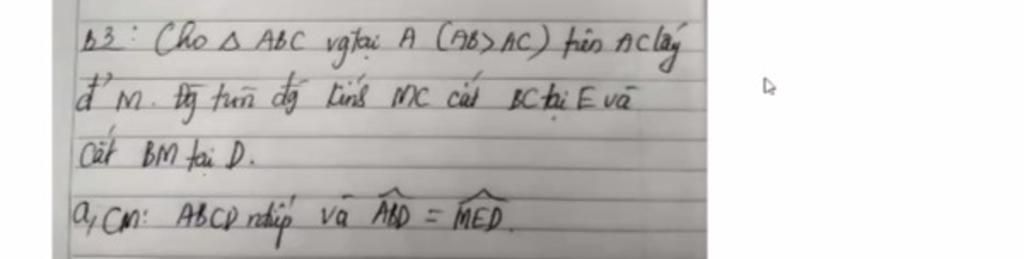 B3: Cho Δ ABC vg tại A (AB>AC) trên AC lấy
đ' M. Đg tròn đg kính MC cắt BC tại E và
cắt BM tại D.
a, CM: ABCD ntiếp và ABD = MED.